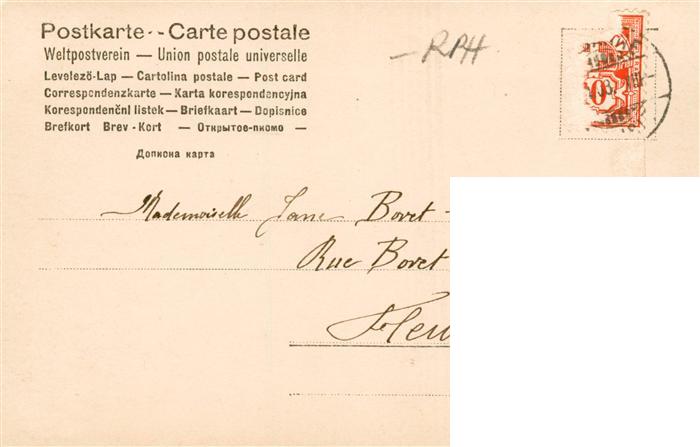 Postkarte - - Carte postale
Weltpostverein — Union postale universelle
Levelező-Lap — Cartolina postale — Post card
Correspondenzkarte — Karta korespondencyjna
Korespondenční listek — Briefkaart — Dopisnice
Brefkort Brev-Kort — Открытое-писмо —
Дописна карта
— RPH
Mademoiselle Jane Bovet -
Rue Bovet
Fleu